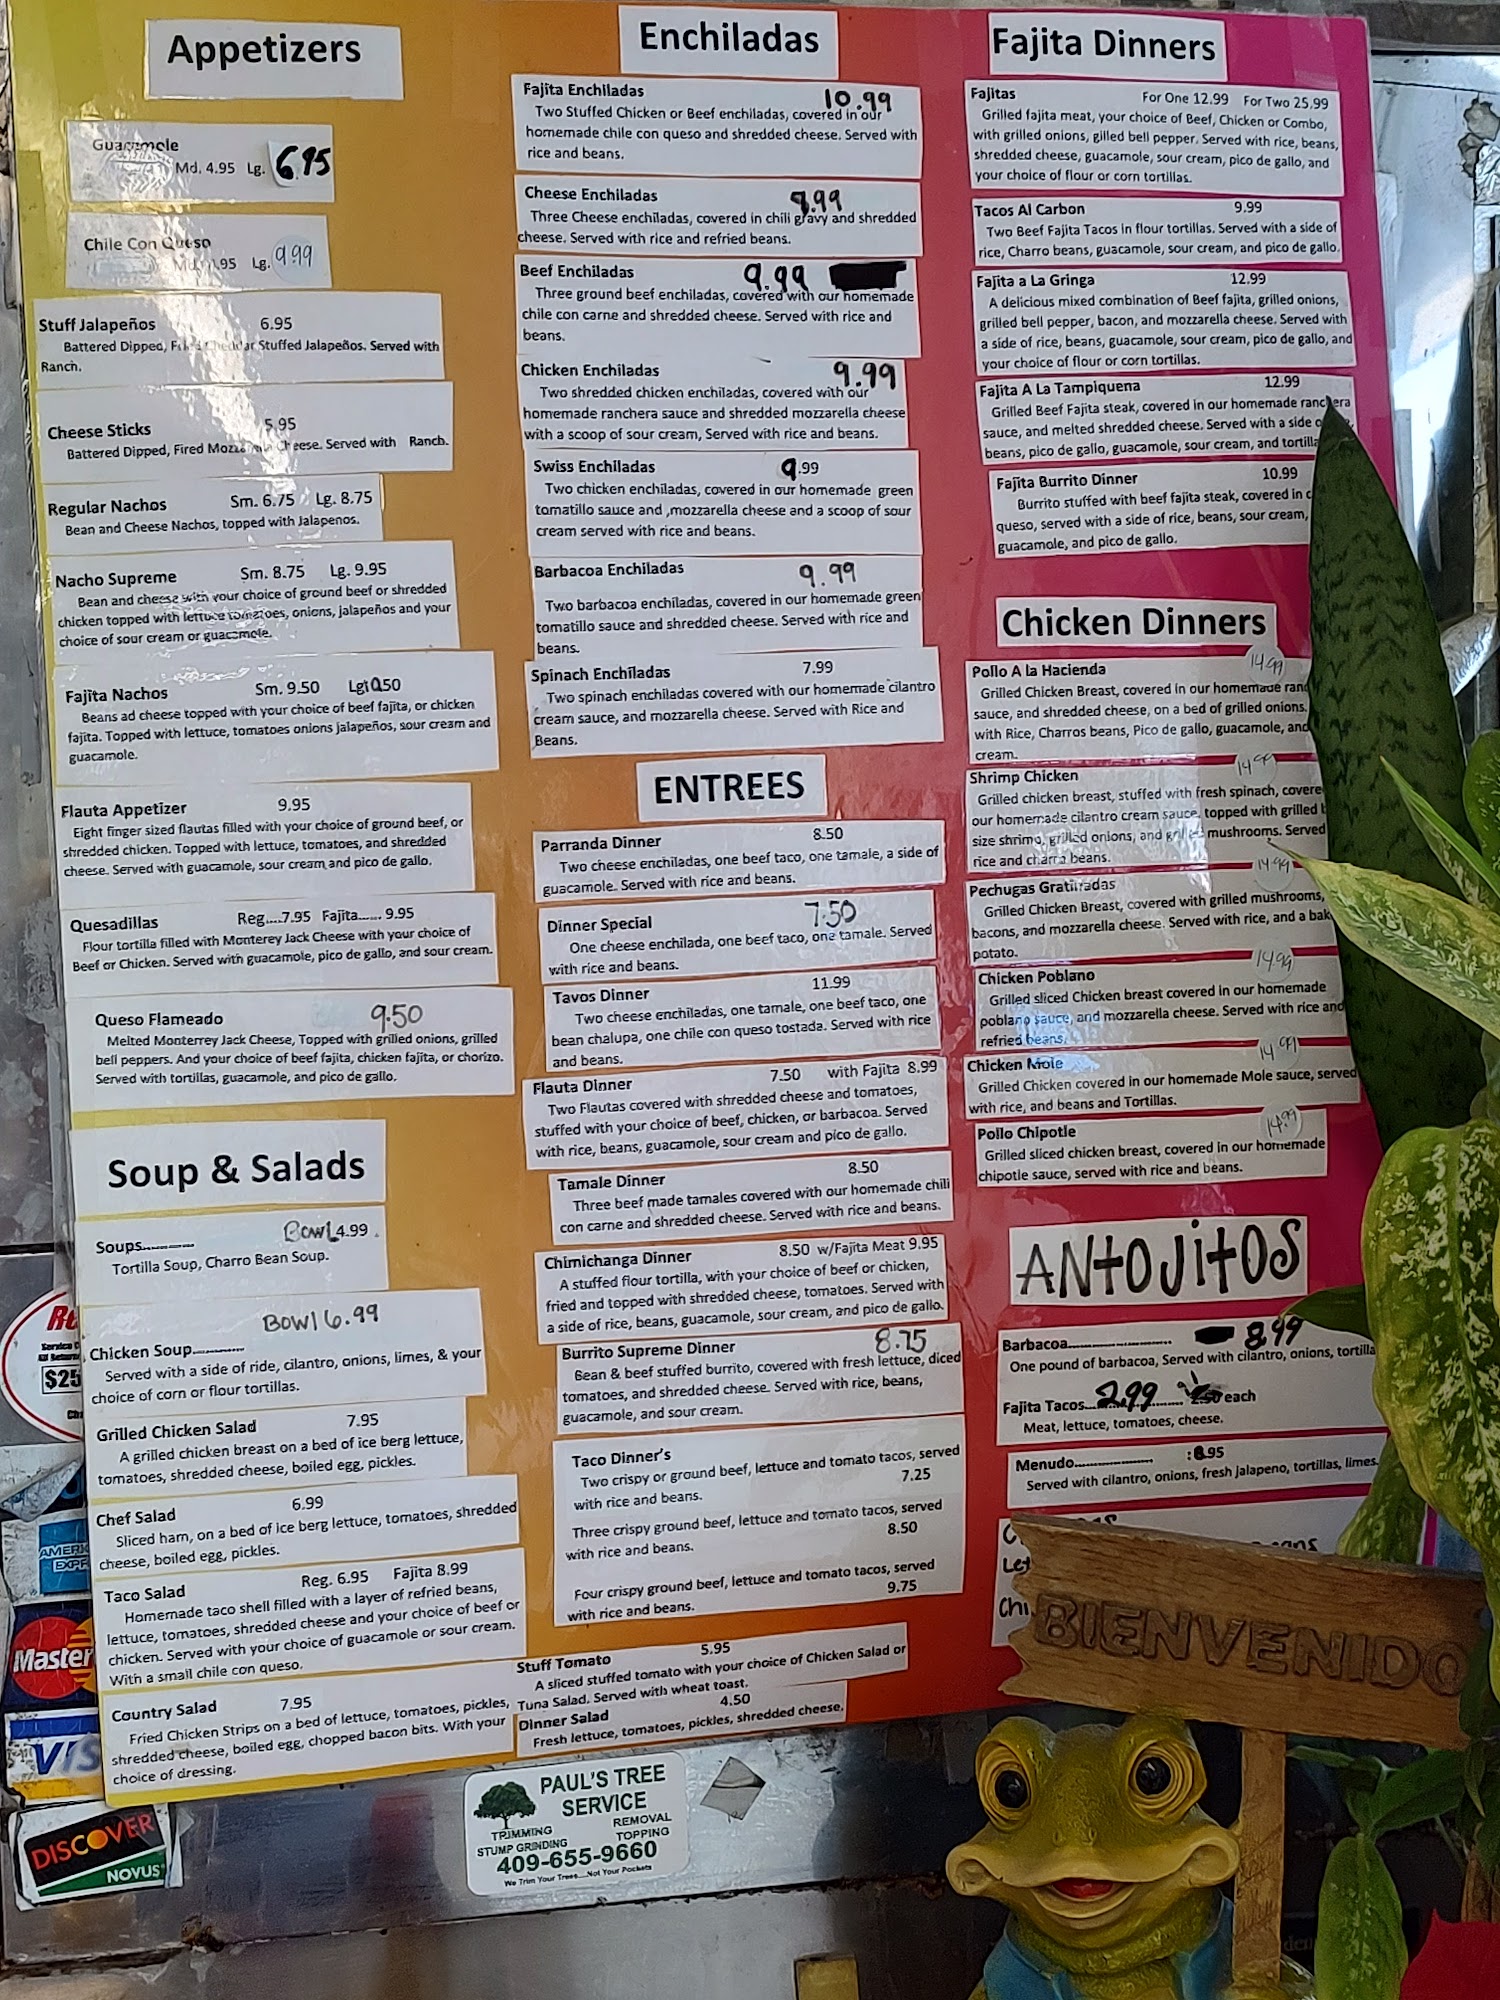 Appetizers
Guacamole
Md. 4.95 Lg. 6.95
Chile Con Queso
Lg. 9.99
Stuff Jalapeños 6.95
Battered Dipped, Fried Cheddar Stuffed Jalapeños. Served with
Ranch.
Cheese Sticks 5.95
Battered Dipped, Fired Mozzarella Cheese. Served with Ranch.
Regular Nachos Sm. 6.75 Lg. 8.75
Bean and Cheese Nachos, topped with Jalapenos.
Nacho Supreme Sm. 8.75 Lg. 9.95
Bean and cheese with your choice of ground beef or shredded
chicken topped with lettuce tomatoes, onions, jalapeños and your
choice of sour cream or guacamole.
Fajita Nachos Sm. 9.50 Lg10.50
Beans ad cheese topped with your choice of beef fajita, or chicken
fajita. Topped with lettuce, tomatoes onions jalapeños, sour cream and
guacamole.
Flauta Appetizer 9.95
Eight finger sized flautas filled with your choice of ground beef, or
shredded chicken. Topped with lettuce, tomatoes, and shredded
cheese. Served with guacamole, sour cream and pico de gallo.
Quesadillas Reg....7.95 Fajita...... 9.95
Flour tortilla filled with Monterey Jack Cheese with your choice of
Beef or Chicken. Served with guacamole, pico de gallo, and sour cream.
Queso Flameado 9.50
Melted Monterrey Jack Cheese, Topped with grilled onions, grilled
bell peppers. And your choice of beef fajita, chicken fajita, or chorizo.
Served with tortillas, guacamole, and pico de gallo.
Soup & Salads
Soups........... Bowl 4.99
Tortilla Soup, Charro Bean Soup.
Bowl 6.99
Chicken Soup...........
Served with a side of ride, cilantro, onions, limes, & your
choice of corn or flour tortillas.
Grilled Chicken Salad 7.95
A grilled chicken breast on a bed of ice berg lettuce,
tomatoes, shredded cheese, boiled egg, pickles.
Chef Salad 6.99
Sliced ham, on a bed of ice berg lettuce, tomatoes, shredded
cheese, boiled egg, pickles.
Taco Salad Reg. 6.95 Fajita 8.99
Homemade taco shell filled with a layer of refried beans,
lettuce, tomatoes, shredded cheese and your choice of beef or
chicken. Served with your choice of guacamole or sour cream.
With a small chile con queso.
Country Salad 7.95
Fried Chicken Strips on a bed of lettuce, tomatoes, pickles,
shredded cheese, boiled egg, chopped bacon bits. With your
choice of dressing.
Enchiladas
Fajita Enchiladas 10.99
Two Stuffed Chicken or Beef enchiladas, covered in our
homemade chile con queso and shredded cheese. Served with
rice and beans.
Cheese Enchiladas 9.99
Three Cheese enchiladas, covered in chili gravy and shredded
cheese. Served with rice and refried beans.
Beef Enchiladas 9.99
Three ground beef enchiladas, covered with our homemade
chile con carne and shredded cheese. Served with rice and
beans.
Chicken Enchiladas 9.99
Two shredded chicken enchiladas, covered with our
homemade ranchera sauce and shredded mozzarella cheese
with a scoop of sour cream, Served with rice and beans.
Swiss Enchiladas 9.99
Two chicken enchiladas, covered in our homemade green
tomatillo sauce and ,mozzarella cheese and a scoop of sour
cream served with rice and beans.
Barbacoa Enchiladas 9.99
Two barbacoa enchiladas, covered in our homemade green
tomatillo sauce and shredded cheese. Served with rice and
beans.
Spinach Enchiladas 7.99
Two spinach enchiladas covered with our homemade cilantro
cream sauce, and mozzarella cheese. Served with Rice and
Beans.
ENTREES
Parranda Dinner 8.50
Two cheese enchiladas, one beef taco, one tamale, a side of
guacamole. Served with rice and beans.
Dinner Special 7.50
One cheese enchilada, one beef taco, one tamale. Served
with rice and beans.
Tavos Dinner 11.99
Two cheese enchiladas, one tamale, one beef taco, one
bean chalupa, one chile con queso tostada. Served with rice
and beans.
Flauta Dinner 7.50 with Fajita 8.99
Two Flautas covered with shredded cheese and tomatoes,
stuffed with your choice of beef, chicken, or barbacoa. Served
with rice, beans, guacamole, sour cream and pico de gallo.
Tamale Dinner 8.50
Three beef made tamales covered with our homemade chili
con carne and shredded cheese. Served with rice and beans.
Chimichanga Dinner 8.50 w/Fajita Meat 9.95
A stuffed flour tortilla, with your choice of beef or chicken,
fried and topped with shredded cheese, tomatoes. Served with
a side of rice, beans, guacamole, sour cream, and pico de gallo.
Burrito Supreme Dinner 8.75
Bean & beef stuffed burrito, covered with fresh lettuce, diced
tomatoes, and shredded cheese. Served with rice, beans,
guacamole, and sour cream.
Taco Dinner's
Two crispy or ground beef, lettuce and tomato tacos, served
with rice and beans. 7.25
Three crispy ground beef, lettuce and tomato tacos, served
with rice and beans. 8.50
Four crispy ground beef, lettuce and tomato tacos, served
with rice and beans. 9.75
Stuff Tomato 5.95
A sliced stuffed tomato with your choice of Chicken Salad or
Tuna Salad. Served with wheat toast.
Dinner Salad 4.50
Fresh lettuce, tomatoes, pickles, shredded cheese.
Fajita Dinners
Fajitas For One 12.99 For Two 25.99
Grilled fajita meat, your choice of Beef, Chicken or Combo,
with grilled onions, gilled bell pepper. Served with rice, beans,
shredded cheese, guacamole, sour cream, pico de gallo, and
your choice of flour or corn tortillas.
Tacos Al Carbon 9.99
Two Beef Fajita Tacos in flour tortillas. Served with a side of
rice, Charro beans, guacamole, sour cream, and pico de gallo.
Fajita a La Gringa 12.99
A delicious mixed combination of Beef fajita, grilled onions,
grilled bell pepper, bacon, and mozzarella cheese. Served with
a side of rice, beans, guacamole, sour cream, pico de gallo, and
your choice of flour or corn tortillas.
Fajita A La Tampiquena 12.99
Grilled Beef Fajita steak, covered in our homemade ranchera
sauce, and melted shredded cheese. Served with a side o
beans, pico de gallo, guacamole, sour cream, and tortilla
Fajita Burrito Dinner 10.99
Burrito stuffed with beef fajita steak, covered in c
queso, served with a side of rice, beans, sour cream,
guacamole, and pico de gallo.
Chicken Dinners
Pollo A la Hacienda 14.99
Grilled Chicken Breast, covered in our homemade ran
sauce, and shredded cheese, on a bed of grilled onions.
with Rice, Charros beans, Pico de gallo, guacamole, and
cream.
Shrimp Chicken 14.99
Grilled chicken breast, stuffed with fresh spinach, covere
our homemade cilantro cream sauce, topped with grilled
size shrimp, grilled onions, and grilled mushrooms. Served
rice and charra beans.
Pechugas Gratinadas 14.99
Grilled Chicken Breast, covered with grilled mushrooms,
bacons, and mozzarella cheese. Served with rice, and a bak
potato.
Chicken Poblano 14.99
Grilled sliced Chicken breast covered in our homemade
poblano sauce, and mozzarella cheese. Served with rice and
refried beans.
Chicken Mole 14.99
Grilled Chicken covered in our homemade Mole sauce, served
with rice, and beans and Tortillas.
Pollo Chipotle 14.99
Grilled sliced chicken breast, covered in our homemade
chipotle sauce, served with rice and beans.
ANTOJITOS
Barbacoa...................... 8.99
One pound of barbacoa, Served with cilantro, onions, tortilla
Fajita Tacos...2.99 each
Meat, lettuce, tomatoes, cheese.
Menudo................. 8.95
Served with cilantro, onions, fresh jalapeno, tortillas, limes.
Let
Chi
BIENVENIDO
$25
AMERI
EXPR
Master
VIS
DISCOVER
NOVUS
PAUL'S TREE
SERVICE
TRIMMING REMOVAL
STUMP GRINDING TOPPING
409-655-9660
We Trim Your Trees....Not Your Pockets